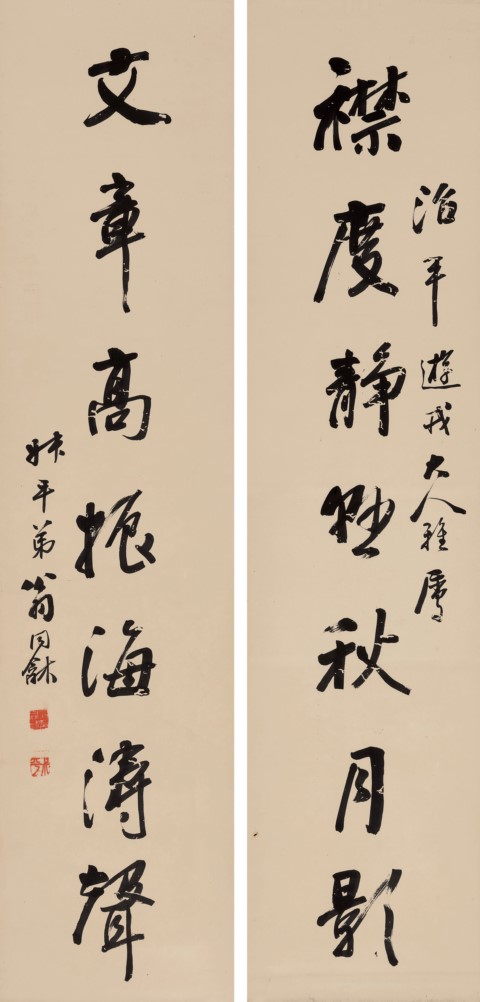 襟度静懸秋月影
平遊戎大人雅屬
文章高振海濤聲
叔平弟翁同龢